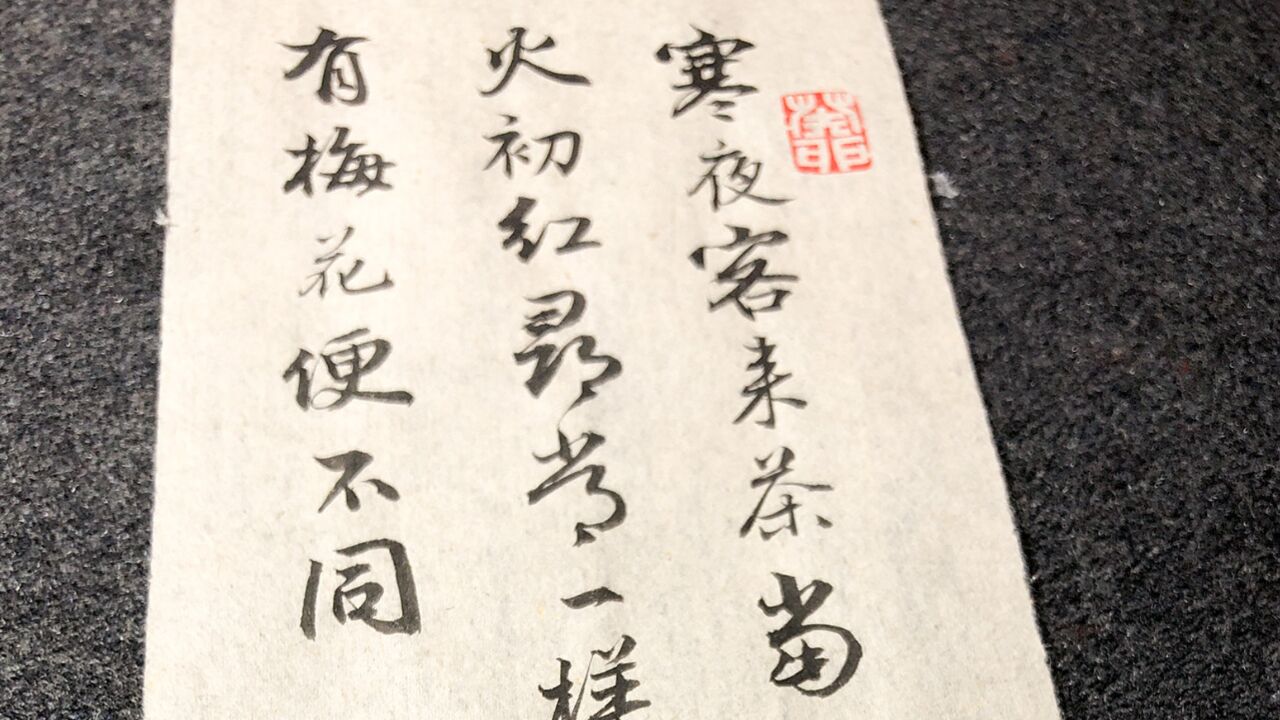 寒夜客来茶當
火初红尋常一樣
有梅花便不同